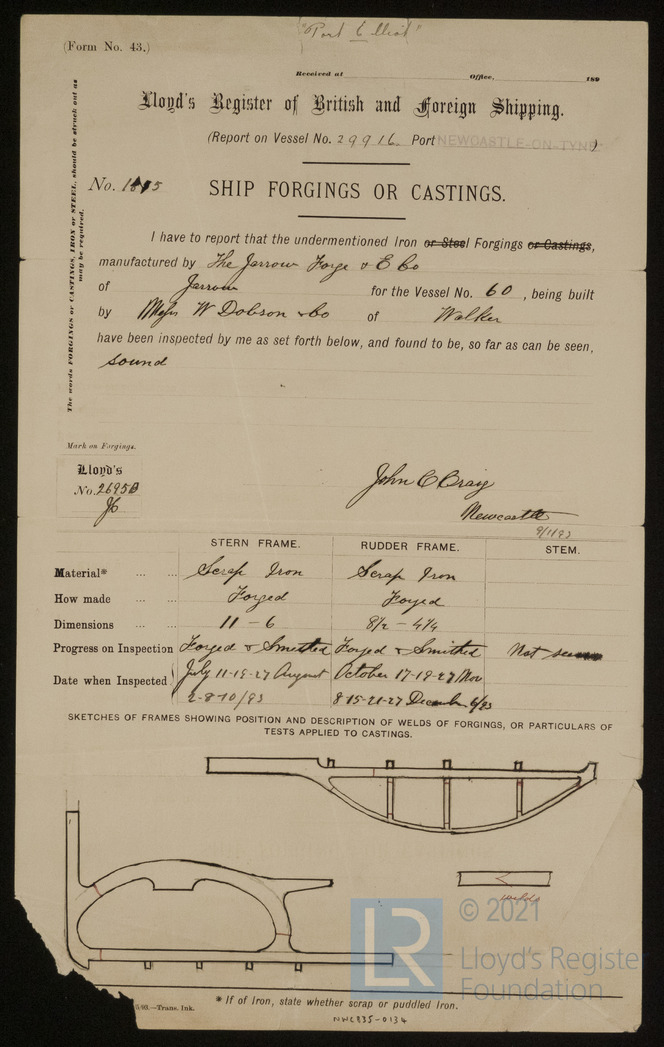 "Port Elliot"
(Form No. 43.)
Received at Office, 189
Lloyd's Register of British and Foreign Shipping.
(Report on Vessel No. 29916 Port NEWCASTLE-ON-TYNE )
No. SHIP FORGINGS OR CASTINGS.
The words FORGINGS or CASTINGS, IRON or STEEL, should be struck out as
may be required.
I have to report that the undermentioned Iron or Steel Forgings or Castings,
manufactured by The Jarrow Forge & E Co
of Jarrow for the Vessel No. 60, being built
by Messrs W Dobson & Co of Walker
have been inspected by me as set forth below, and found to be, so far as can be seen,
sound
Mark on Forgings.
Lloyd's
No. 2695B
John C Craig
Newcastle
STERN FRAME. RUDDER FRAME. STEM.
Material* ... ... Scrap Iron Scrap Iron
How made ... Forged Forged
Dimensions ... ... 11 - 6 8½ - 4¼
Progress on Inspection Forged & Smithed Forged & Smithed Not seen
Date when Inspected July 11-19-27 August October 17-19-27 Nov
2-8-10/93 8-15-21-27 December 6/93
SKETCHES OF FRAMES SHOWING POSITION AND DESCRIPTION OF WELDS OF FORGINGS, OR PARTICULARS OF
TESTS APPLIED TO CASTINGS.
welds
LR
© 2021
Lloyd's Register
Foundation
* If of Iron, state whether scrap or puddled Iron.
—Trans. Ink.
NWC835-0134